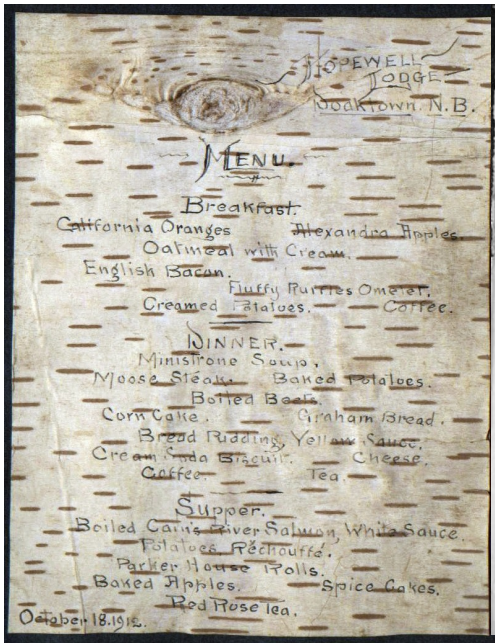 Hopewell
Lodge
Doaktown. N.B.
Menu.
Breakfast.
California Oranges Alexandra Apples.
Oatmeal with Cream.
English Bacon.
Fluffy Ruffles Omelet.
Creamed Potatoes. Coffee.
Dinner.
Ministrone Soup.
Moose Steak. Baked Potatoes.
Boiled Beets.
Corn Cake. Graham Bread.
Bread Pudding, Yellow Sauce.
Cream Soda Biscuit. Cheese.
Coffee. Tea.
Supper.
Boiled Cain's River Salmon, White Sauce.
Potatoes Réchouffé.
Parker House Rolls.
Baked Apples. Spice Cakes.
Red Rose Tea.
October 18. 1912.